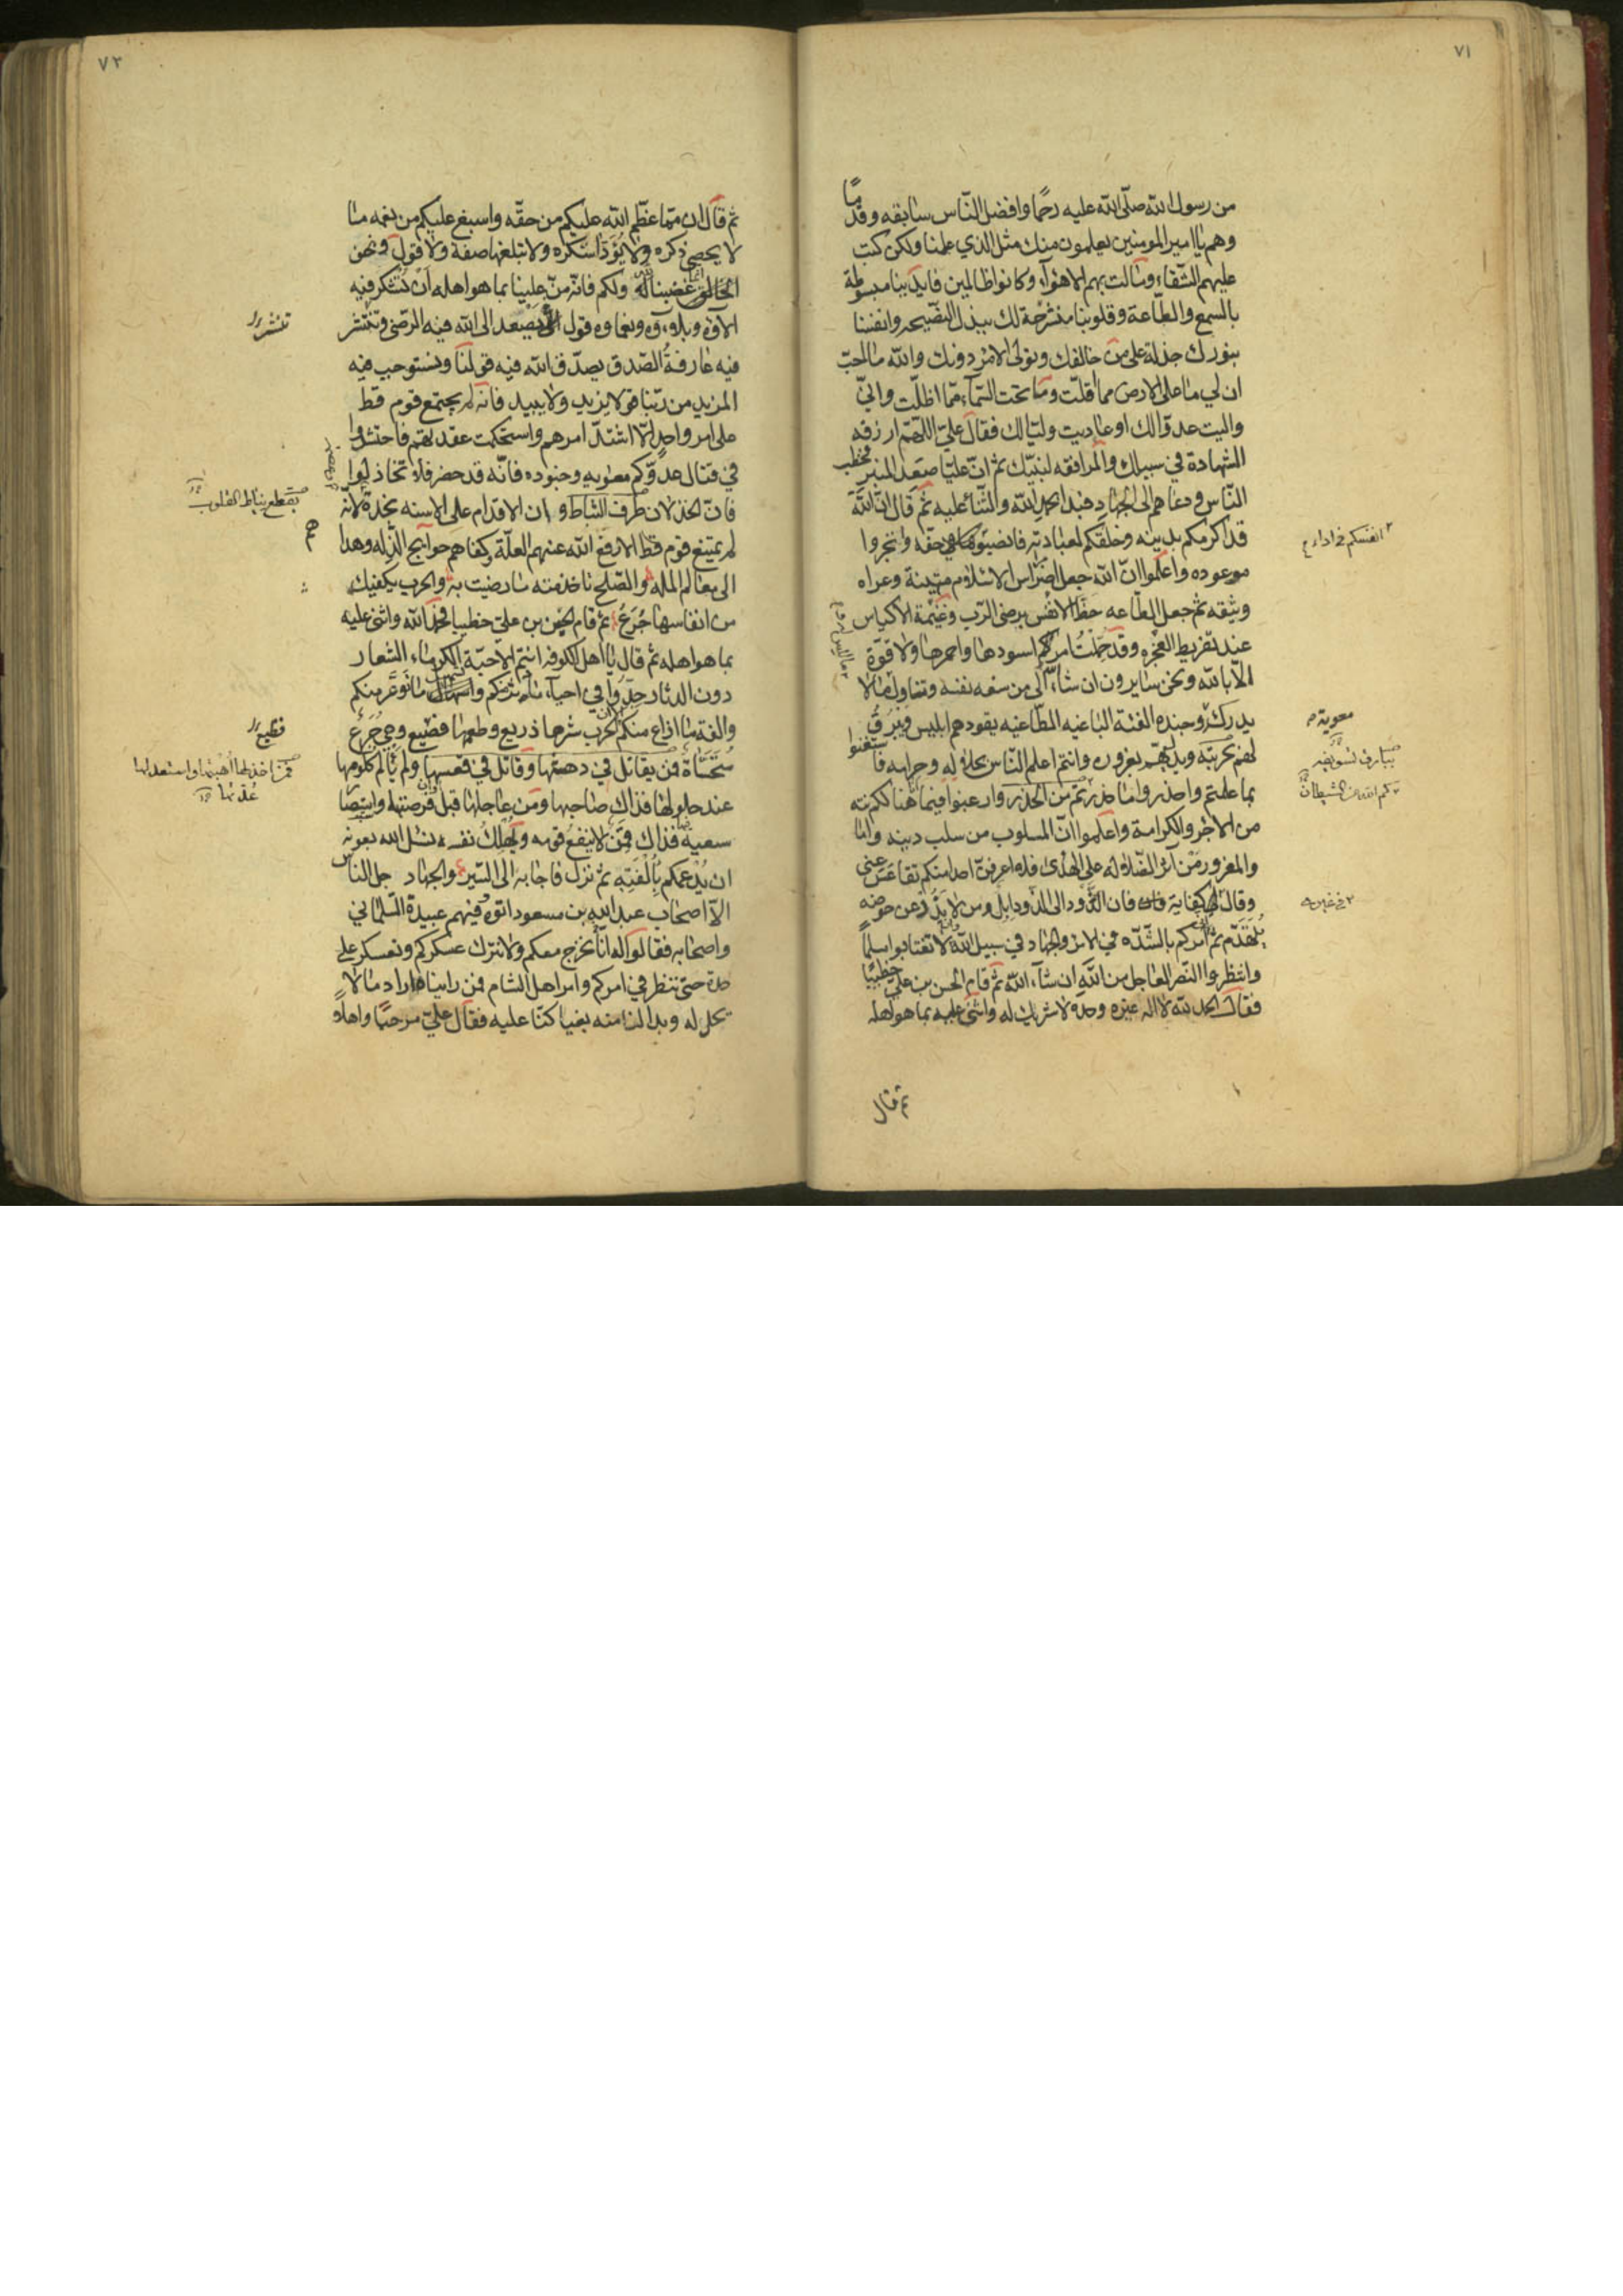 ٧١
من رسول الله صلّى الله عليه رحمًا وافضل الناس سابقه وقدمًا
وهم يا امير المومنين يعلمون منك مثل الذي علمنا ولكن كتب
عليهم الشقاء ومالت بهم الاهواء وكانوا ظالمين فايدينا مبسوطة
بالسمع والطاعة وقلوبنا منشرحة لك ببذل النصيحه وانفسنا
بنورك جذلة على من خالفك وتولى الامر دونك والله ما احبّ
ان لي ما على الارض مما اقلّت وما تحت السماء مما اظلّت واني
واليت عدوّا لك او عاديت وليا لك فقال عليّ اللهم ارزقه
الشهادة في سبيلك والمرافقه لنبيّك ثم انّ عليّا صعد المنبر فخطب
الناس ودعاهم الى الجهاد فبدا بحمد الله والثناء عليه ثم قال انّ الله
قد اكرمكم بدينه وخلقكم لعبادته فانصبوا حقه وانجزوا
انفسكم في اداء
موعوده واعلموا انّ الله جعل امراس الاسلام متينة وعراه
وثيقه ثم جعل الطاعه حظّ الانفس برضى الرب وغنيمة الاكياس
عند تفريط العجزه وقد حمّلت امركم اسودها واحمرها ولا قوّة
الّا بالله ونحن سايرون ان شاء الله الى من سفه نفسه وتناول ما لا
يدركه وجنده الفئة الباغيه الطاغيه يقودهم ابليس ويبرق
معوية
لهم ببارق تسويفه ويدلّيهم بغروره وانتم اعلم الناس بحلاله وحرامه فاستغنوا
بما علمتم واحذروا ما حذركم من الشيطان وارغبوا فيما هنالكم
من الاجر والكرامة واعلموا انّ المسلوب من سلب دينه وامانته
والمغرور من آثر الضلاله على الهدى فلا اعرفنّ احدا منكم تقاعس عني
وقال في غيري كفاية فان الذود الى الذود ابل ومن لا يذد عن حوضه
يتهدّم ثم امركم بالشدّه في الامر والجهاد في سبيل الله وان لا تغتابوا مسلمًا
وانتظروا النصر العاجل من الله ان شاء الله ثم قام الحسن بن عليّ خطيبًا
فقال الحمد لله لا اله غيره وحده لا شريك له واثنى عليه بما هو اهله
ثم قال
٧٣
ثم قال ان مما عظّم الله عليكم من حقّه واسبغ عليكم من نعمه ما
لا يحصى ذكره ولا يؤدّا شكره ولا تبلغها صفة ولا قول ونحن
انما غضبنا لله ولكم فانه منّ علينا بما هو اهله ان نشكر فيه
الآؤه وبلاؤه ونعماوه قول يصعد الى الله فيه الرضى وتنتشر
تنتشر
فيه عارفة الصدق يصدّق الله فيه قولنا ونستوجب فيه
المزيد من ربّنا قولا يزيد ولا يبيد فانه لم يجتمع قوم قط
على امر واحد الّا اشتدّ امرهم واستحكمت عقدتهم فاحتشدوا
في قتال عدوّكم معويه وجنوده فانّه قد حضر فلا تخاذلوا
فانّ الخذلان يقطع نياط القلوب وان الاقدام على الاسنه نجدة لانّه
لم يمتنع قوم قط الا رفع الله عنهم العلّة وكفاهم حوايج الذله وهداهم
الى معالم المله والصلح تاخذ منه ما رضيت به والحرب يكفيك
من انفاسها جرع ثم قام الحسين بن عليّ خطيبا فحمد الله واثنى عليه
بما هو اهله ثم قال يا اهل الكوفه انتم الاحبّة الكرماء الشعار
دون الدثار جدّوا في احياء ما دثر بينكم واسهال ما توعّر منكم
والفة ما اذاع منكم الا ان الحرب شرها ذريع وطعمها فضيع وهي جرع
فظيع
متحسّاة فمن اخذ لها اهبتها واستعد لها عدّتها ولم يألم كلومها
عند حلولها فذاك صاحبها ومن عاجلها قبل فرصتها واستبصار
سعيه فيها فذاك قمن لا ينفع قومه ويهلك نفسه نسل الله بعونه
ان يدعمكم بألفته ثم نزل فاجابه الى السير والجهاد جل الناس
الا اصحاب عبد الله بن مسعود اتوه فيهم عبيدة السلماني
واصحابه فقالوا له انا نخرج معكم ولا نترك عسكركم ونعسكر على
حدة حتى ننظر في امركم وامر اهل الشام فمن رايناه اراد ما لا
يحل له وبدا لنا منه بغيا كنا عليه فقال عليّ مرحبًا واهلًا